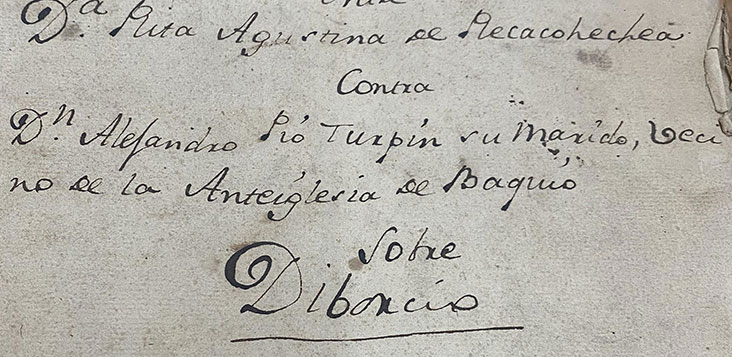 D.ª Rita Agustina de Recacohechea
Contra
Dⁿ Alejandro Pío Turpín su Marido, Veci
no de la Anteiglesia de Baquio
Sobre
Diborcio